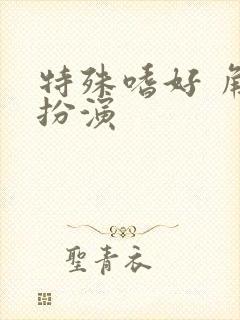 特殊嗜好 角
扮演
聖青衣